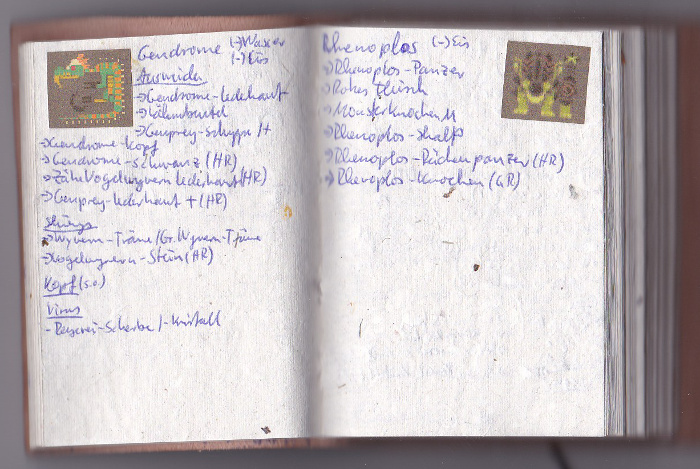 Gendrome (-) Wasser
(-) Eis
Ausweiden
→Gendrome-Lederhaut
→Lähmbeutel
→Genprey-Schuppe/+
→Gendrome-Kopf
→Gendrome-Schwanz (HR)
→Zähe Vogelwyvern Lederhaut (HR)
→Genprey-Lederhaut + (HR)
→Wyvern-Träne/Gr. Wyvern-Träne
→Vogelwyvern-Stein (HR)
Kopf (s.o.)
Virus
-Raserei-Scherbe/-Kristall
Rhenoplos (-) Eis
→Rhenoplos-Panzer
→Rohes Fleisch
→Monsterknochen M
→Rhenoplos-Skalp
→Rhenoplos-Rückenpanzer (HR)
→Rhenoplos-Knochen (GR)